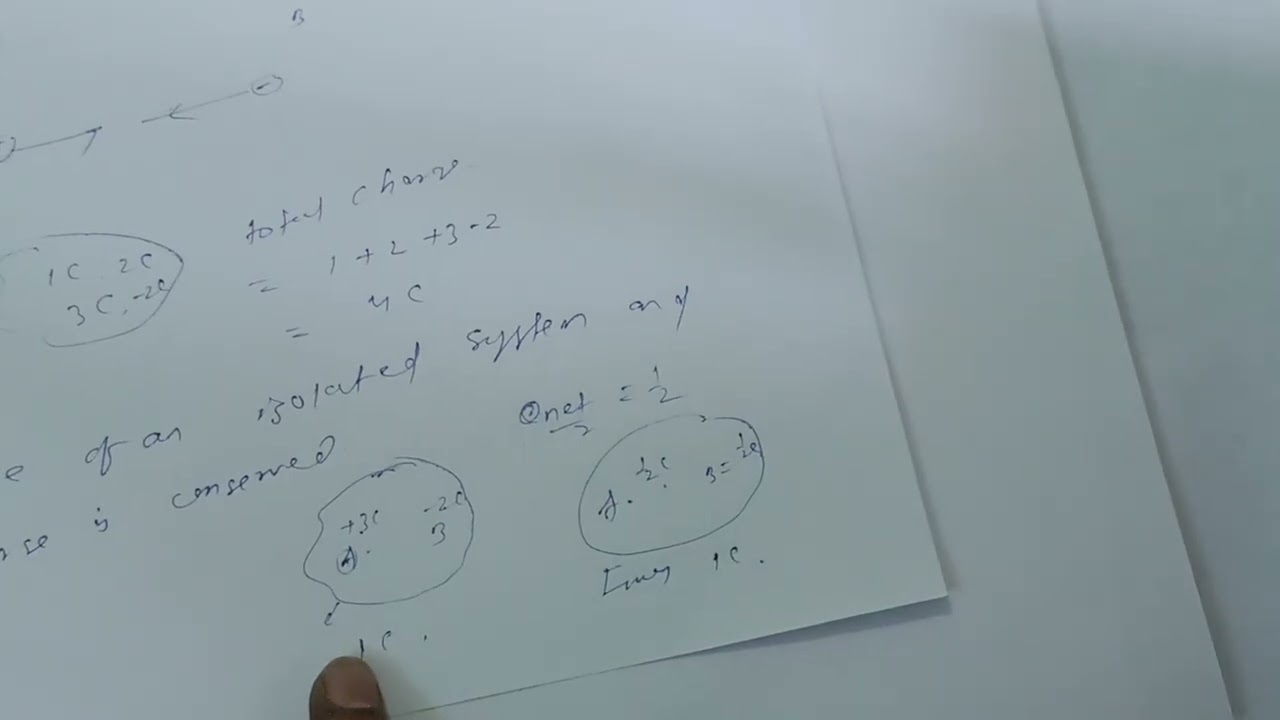 B
total charge
1C 2C
3C, -2C
= 1 + 2 + 3 - 2
= 4C
e of an isolated system any
is conserved
Qnet = 1/2
+3C -2C
A. B
1/2C
A. B = 1/2C
1C.
1C.